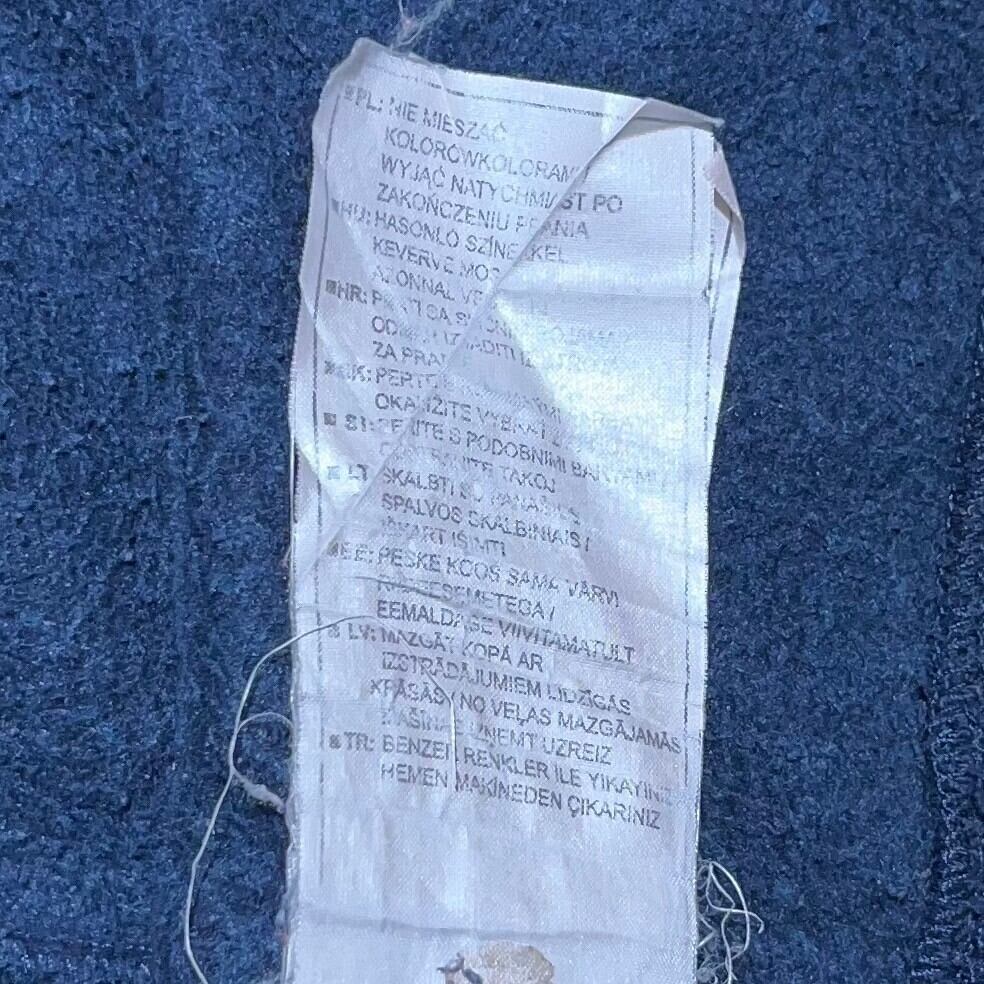 PL: NIE MIESZAĆ
KOLORÓWKOLORAM
WYJĄĆ NATYCHMIAST PO
ZAKOŃCZENIU PRANIA
HU: HASONLÓ SZÍNEKKEL
KEVERVE MOS
AZONNAL
HR:
ZA
OKAMŽITE VYBRAŤ
PERITE S PODOBNIMI BARVAMI
TAKOJ
LT SKALBTI SU
SPALVOS SKALBINIAIS /
IŠKART IŠIMTI
EE: PESKE KOOS SAMA VÄRVI
RIIDEESEMETEGA /
EEMALDAGE VIIVITAMATULT
LV: MAZGĀT KOPĀ AR
IZSTRĀDĀJUMIEM LĪDZĪGĀS
KRĀSĀS / NO VEĻAS MAZGĀJAMĀS
MAŠĪNAS IZŅEMT UZREIZ
TR: BENZER RENKLER ILE YIKAYINIZ
HEMEN MAKİNEDEN ÇIKARINIZ